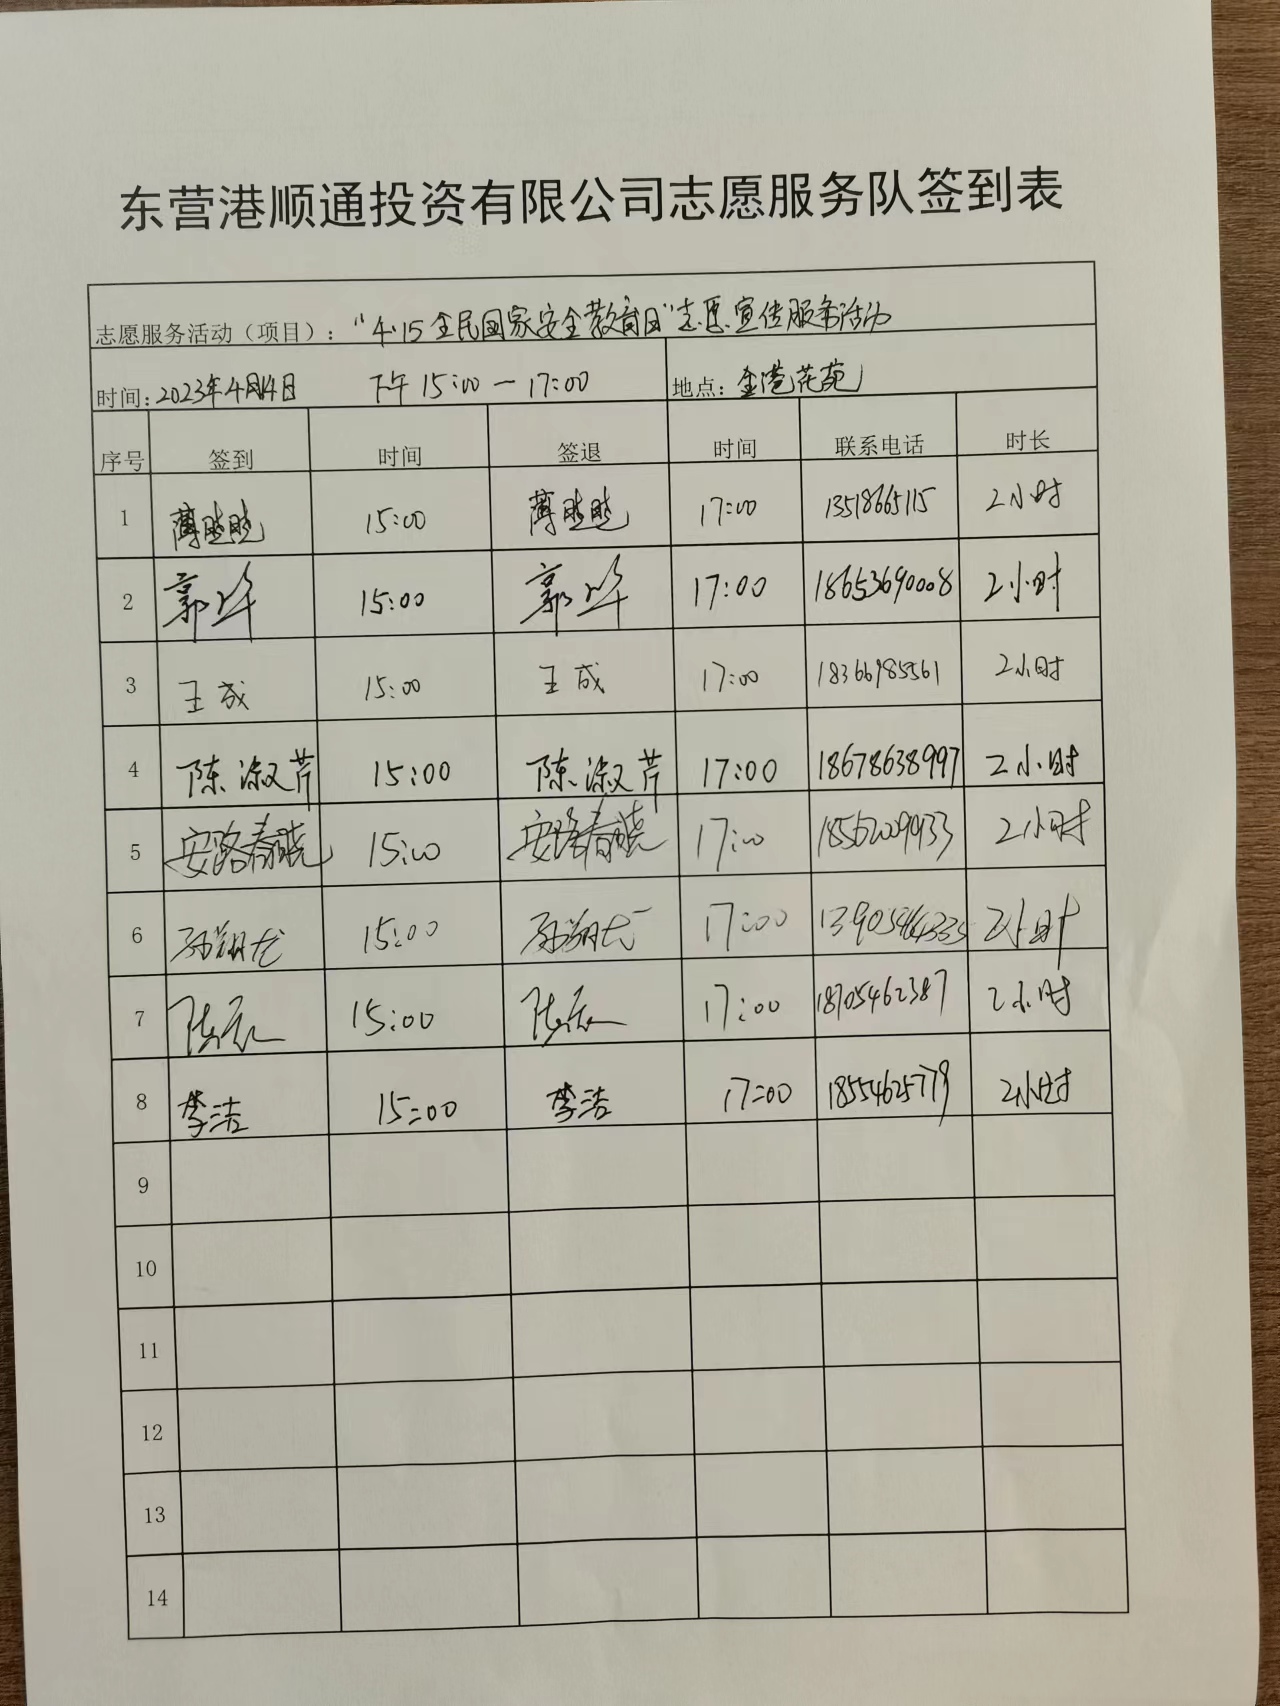 东营港顺通投资有限公司志愿服务队签到表
志愿服务活动（项目）：“4·15全民国家安全教育日”志愿宣传服务活动
时间：2023年4月14日 下午 15:00—17:00 地点：金港花苑
序号 签到 时间 签退 时间 联系电话 时长
1 薄 15:00 薄 17:00 13518665115 2小时
2 郭华 15:00 郭华 17:00 18653690008 2小时
3 王成 15:00 王成 17:00 18366985561 2小时
4 陈淑芹 15:00 陈淑芹 17:00 18678638997 2小时
5 安路春晓 15:00 安路春晓 17:00 2小时
6 孙翔龙 15:00 孙翔龙 17:00 2小时
7 陈辰 15:00 陈辰 17:00 18705462387 2小时
8 李洁 15:00 李洁 17:00 18554625779 2小时
9
10
11
12
13
14